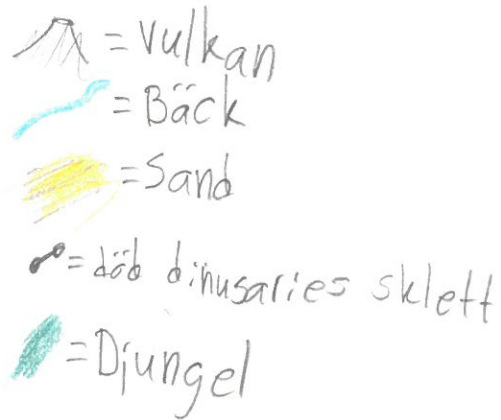 = Vulkan
= Bäck
= Sand
= död dinusaries sklett
= Djungel